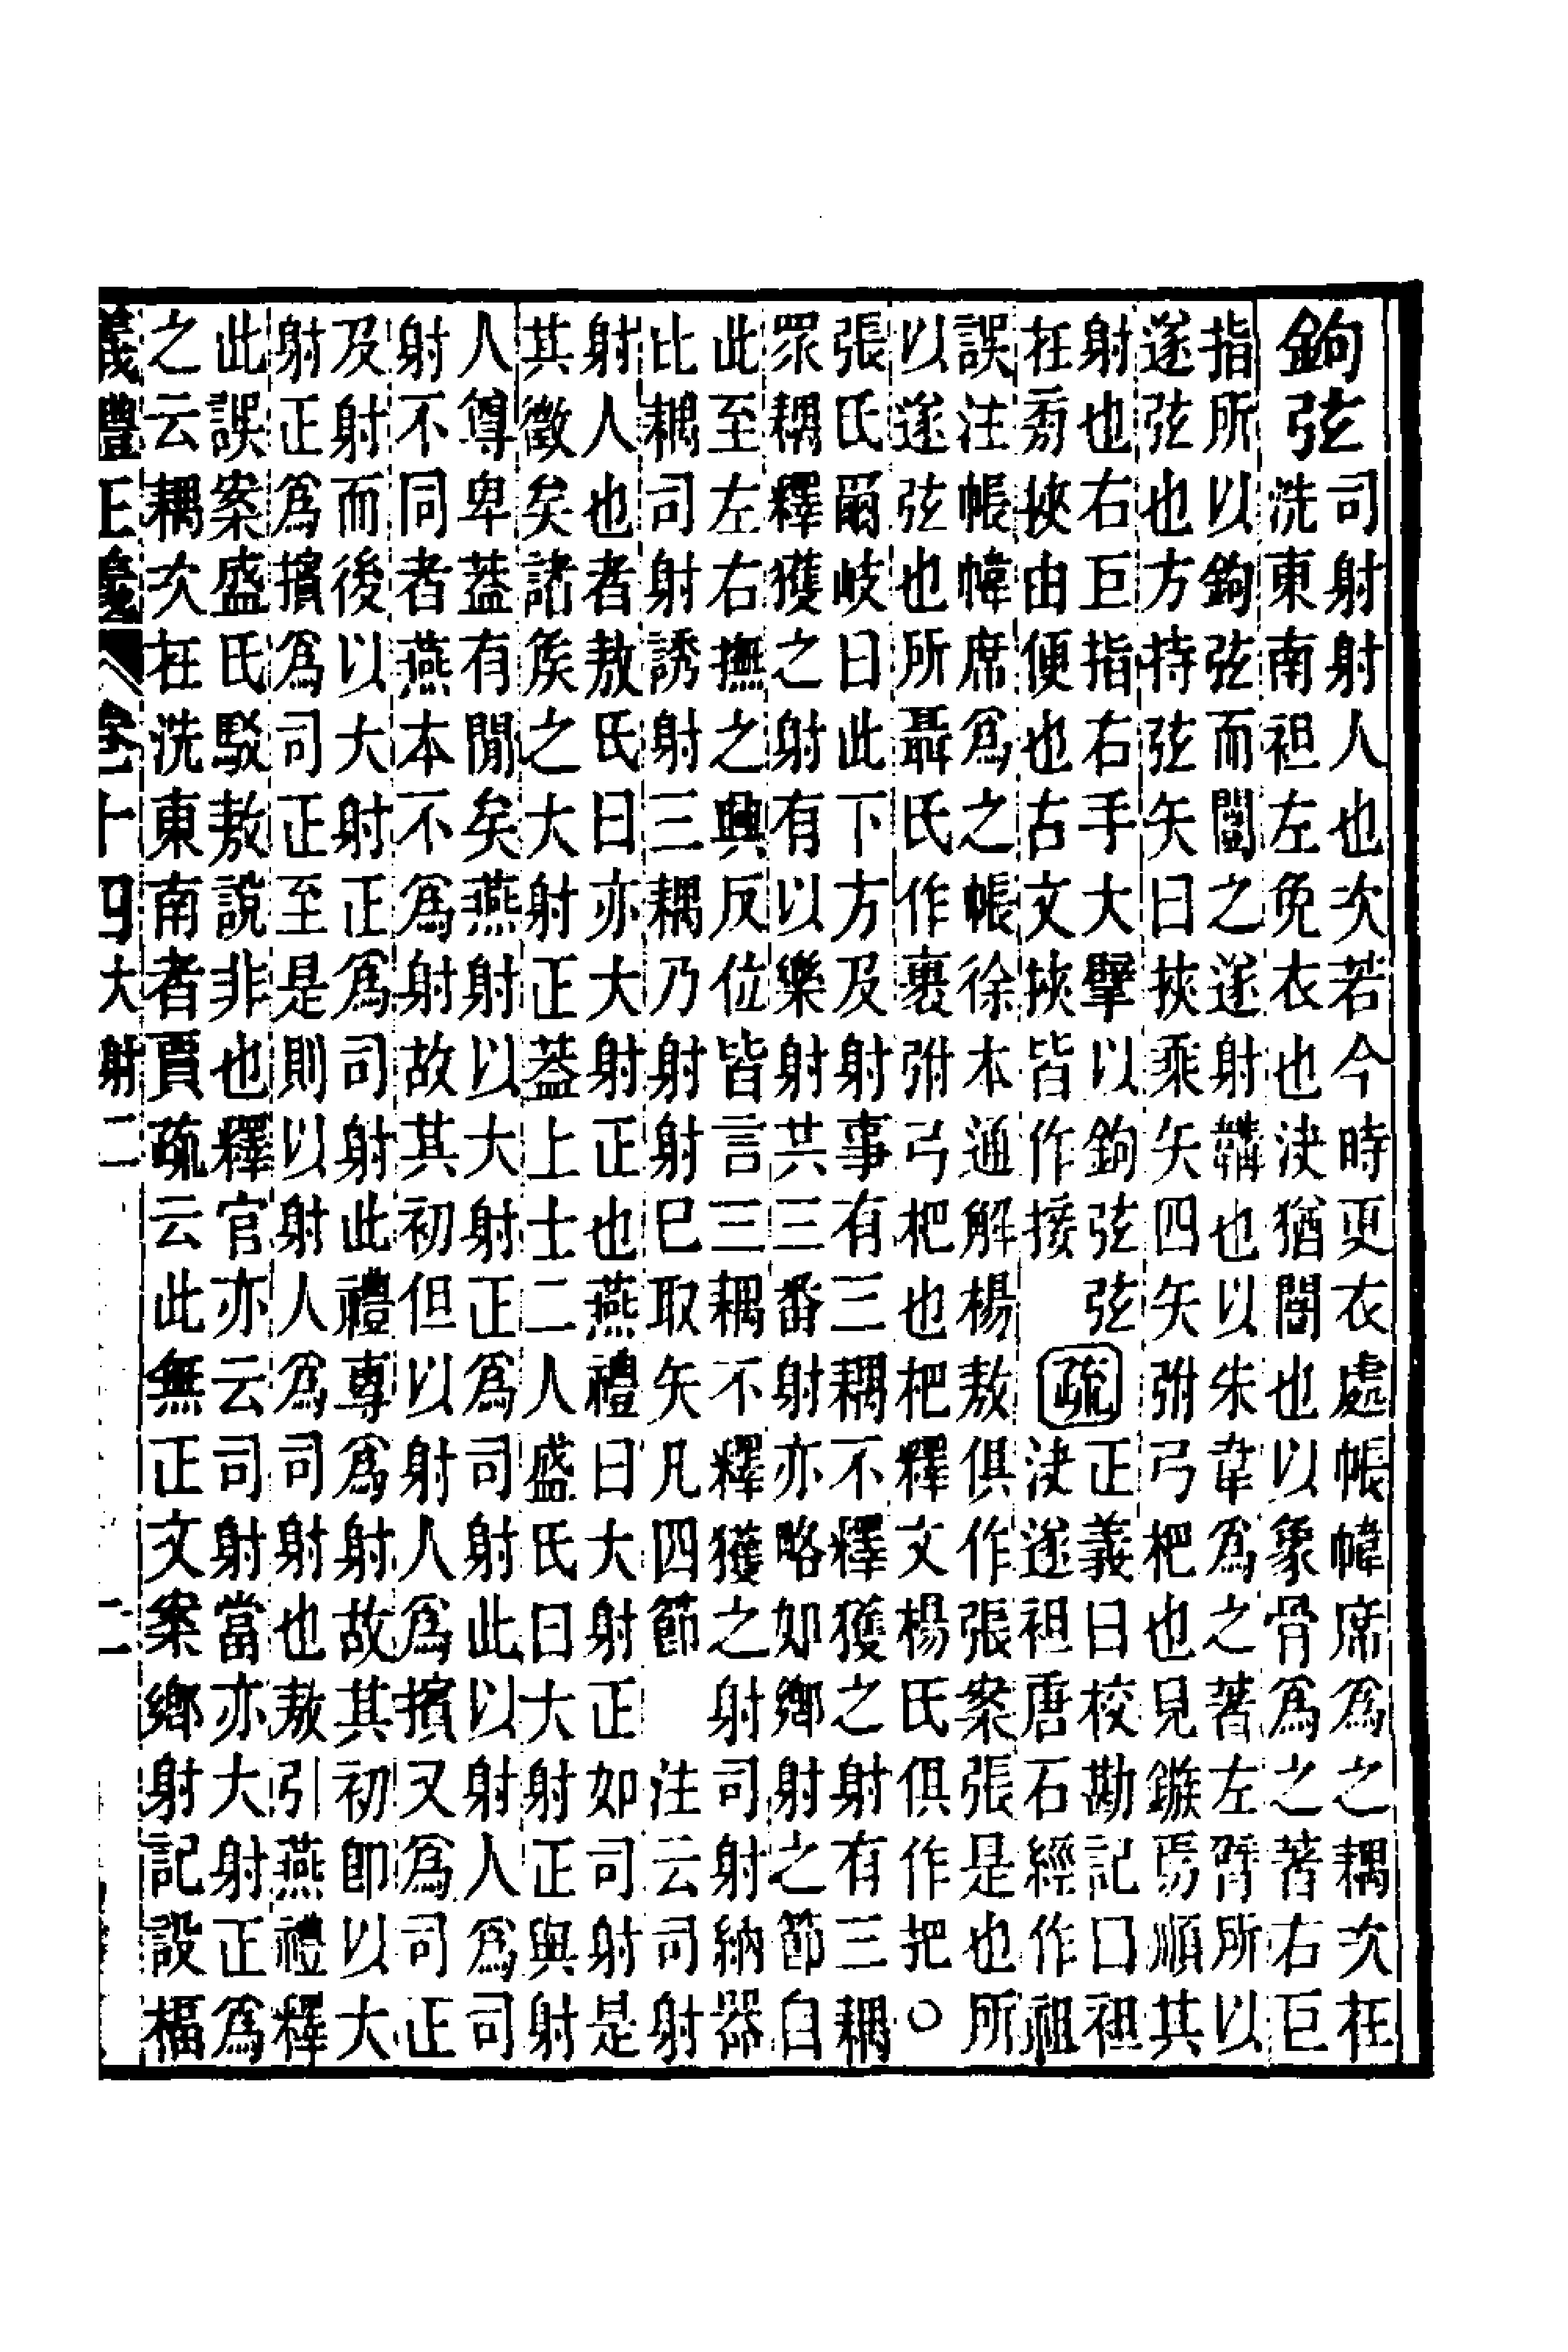 鉤弦
司射射人也次若今時更衣處帳幃席爲之耦次在
洗東南袒左免衣也決猶闓也以象骨爲之著右巨
指所以鉤弦而闓之遂射韝也以朱韋爲之著左臂所以
遂弦也方持弦矢曰挾乘矢四矢弣弓杷也見鏃焉順其
射也右巨指右手大擘以鉤弦弦疏正義曰校勘記口袒
在旁挾由便也古文挾皆作接 決遂袒唐石經作祖
誤注帳幃席爲之帳徐本通解楊敖俱作張案張是也所
以遂弦也所聶氏作裹弣弓杷也杷釋文楊氏俱作把○
張氏爾岐曰此下方及射事有三耦不釋獲之射有三耦
眾耦釋獲之射有以樂射共三番射亦略如鄉射之節自
此至左右撫之興反位皆言三耦不釋獲之射司射納器
比耦司射誘射三耦乃射射巳取矢凡四節 注云司射
射人也者敖氏曰亦大射正也燕禮曰大射正如司射是
其徵矣諸矦之大射正葢上士二人盛氏曰大射正與射
人尊卑葢有閒矣燕射以大射正爲司射此以射人爲司
射不同者燕本不爲射故其初但以射人爲擯又爲司正
及射而後以大射正爲司射此禮專爲射故其初卽以大
射正爲擯爲司正至是則以射人爲司射也敖引燕禮釋
此誤案盛氏駁敖說非也釋官亦云司射當亦大射正爲
之云耦次在洗東南者賈疏云此無正文案鄉射記設楅
儀禮正義 卷十四大射二 二